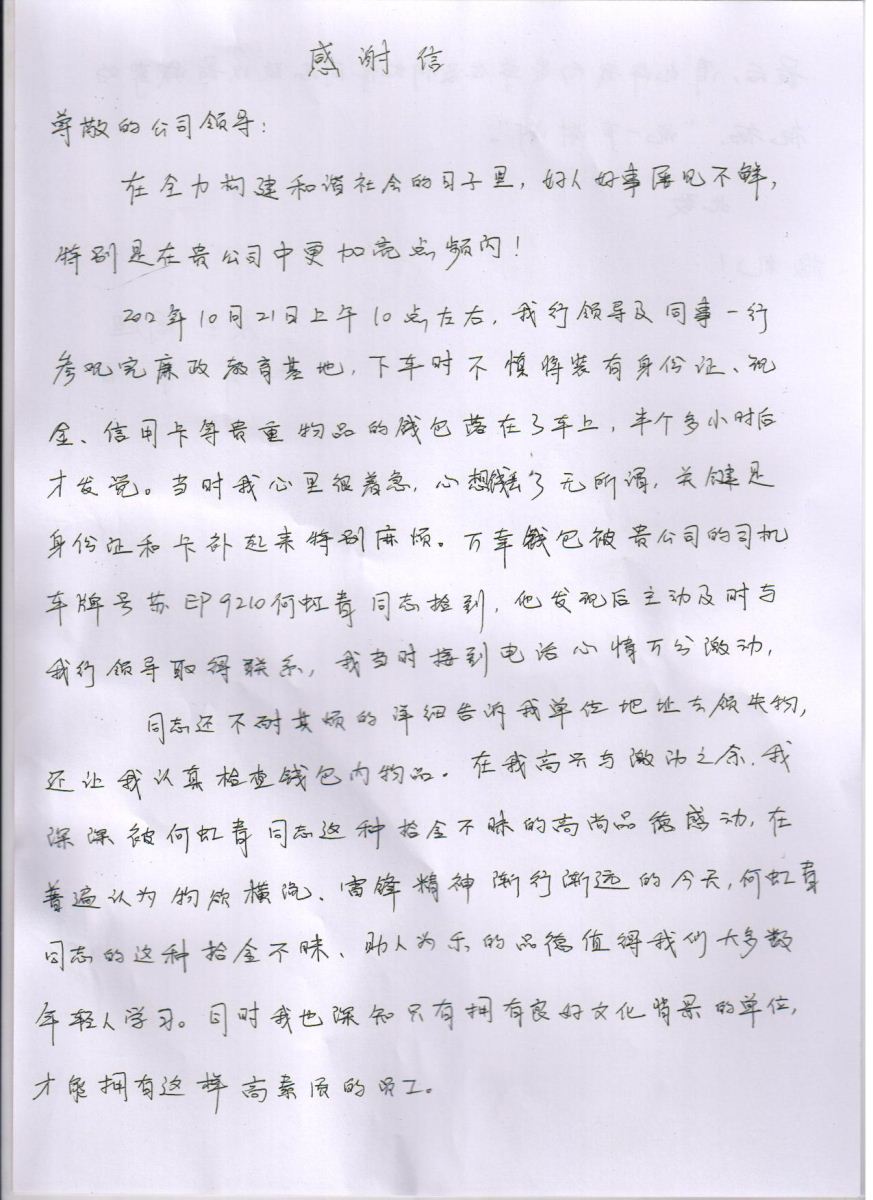 感谢信
尊敬的公司领导:
在全力构建和谐社会的日子里,好人好事屡见不鲜,
特别是在贵公司中更加亮点频闪!
2012年10月21日上午10点左右,我行领导及同事一行
参观完廉政教育基地,下车时不慎将装有身份证、现
金、信用卡等贵重物品的钱包落在了车上,半个多小时后
才发觉。当时我心里很着急,心想钱丢了无所谓,关键是
身份证和卡补起来特别麻烦。万幸钱包被贵公司的司机
车牌号苏EP9210何虹青同志捡到,他发现后主动及时与
我行领导取得联系,我当时接到电话心情万分激动,
同志还不耐其烦的详细告诉我单位地址去领失物,
还让我认真检查钱包内物品。在我高兴与激动之余,我
深深被何虹青同志这种拾金不昧的高尚品德感动,在
普遍认为物欲横流、雷锋精神渐行渐远的今天,何虹青
同志的这种拾金不昧、助人为乐的品德值得我们大多数
年轻人学习。同时我也深知只有拥有良好文化背景的单位,
才能拥有这样高素质的员工。